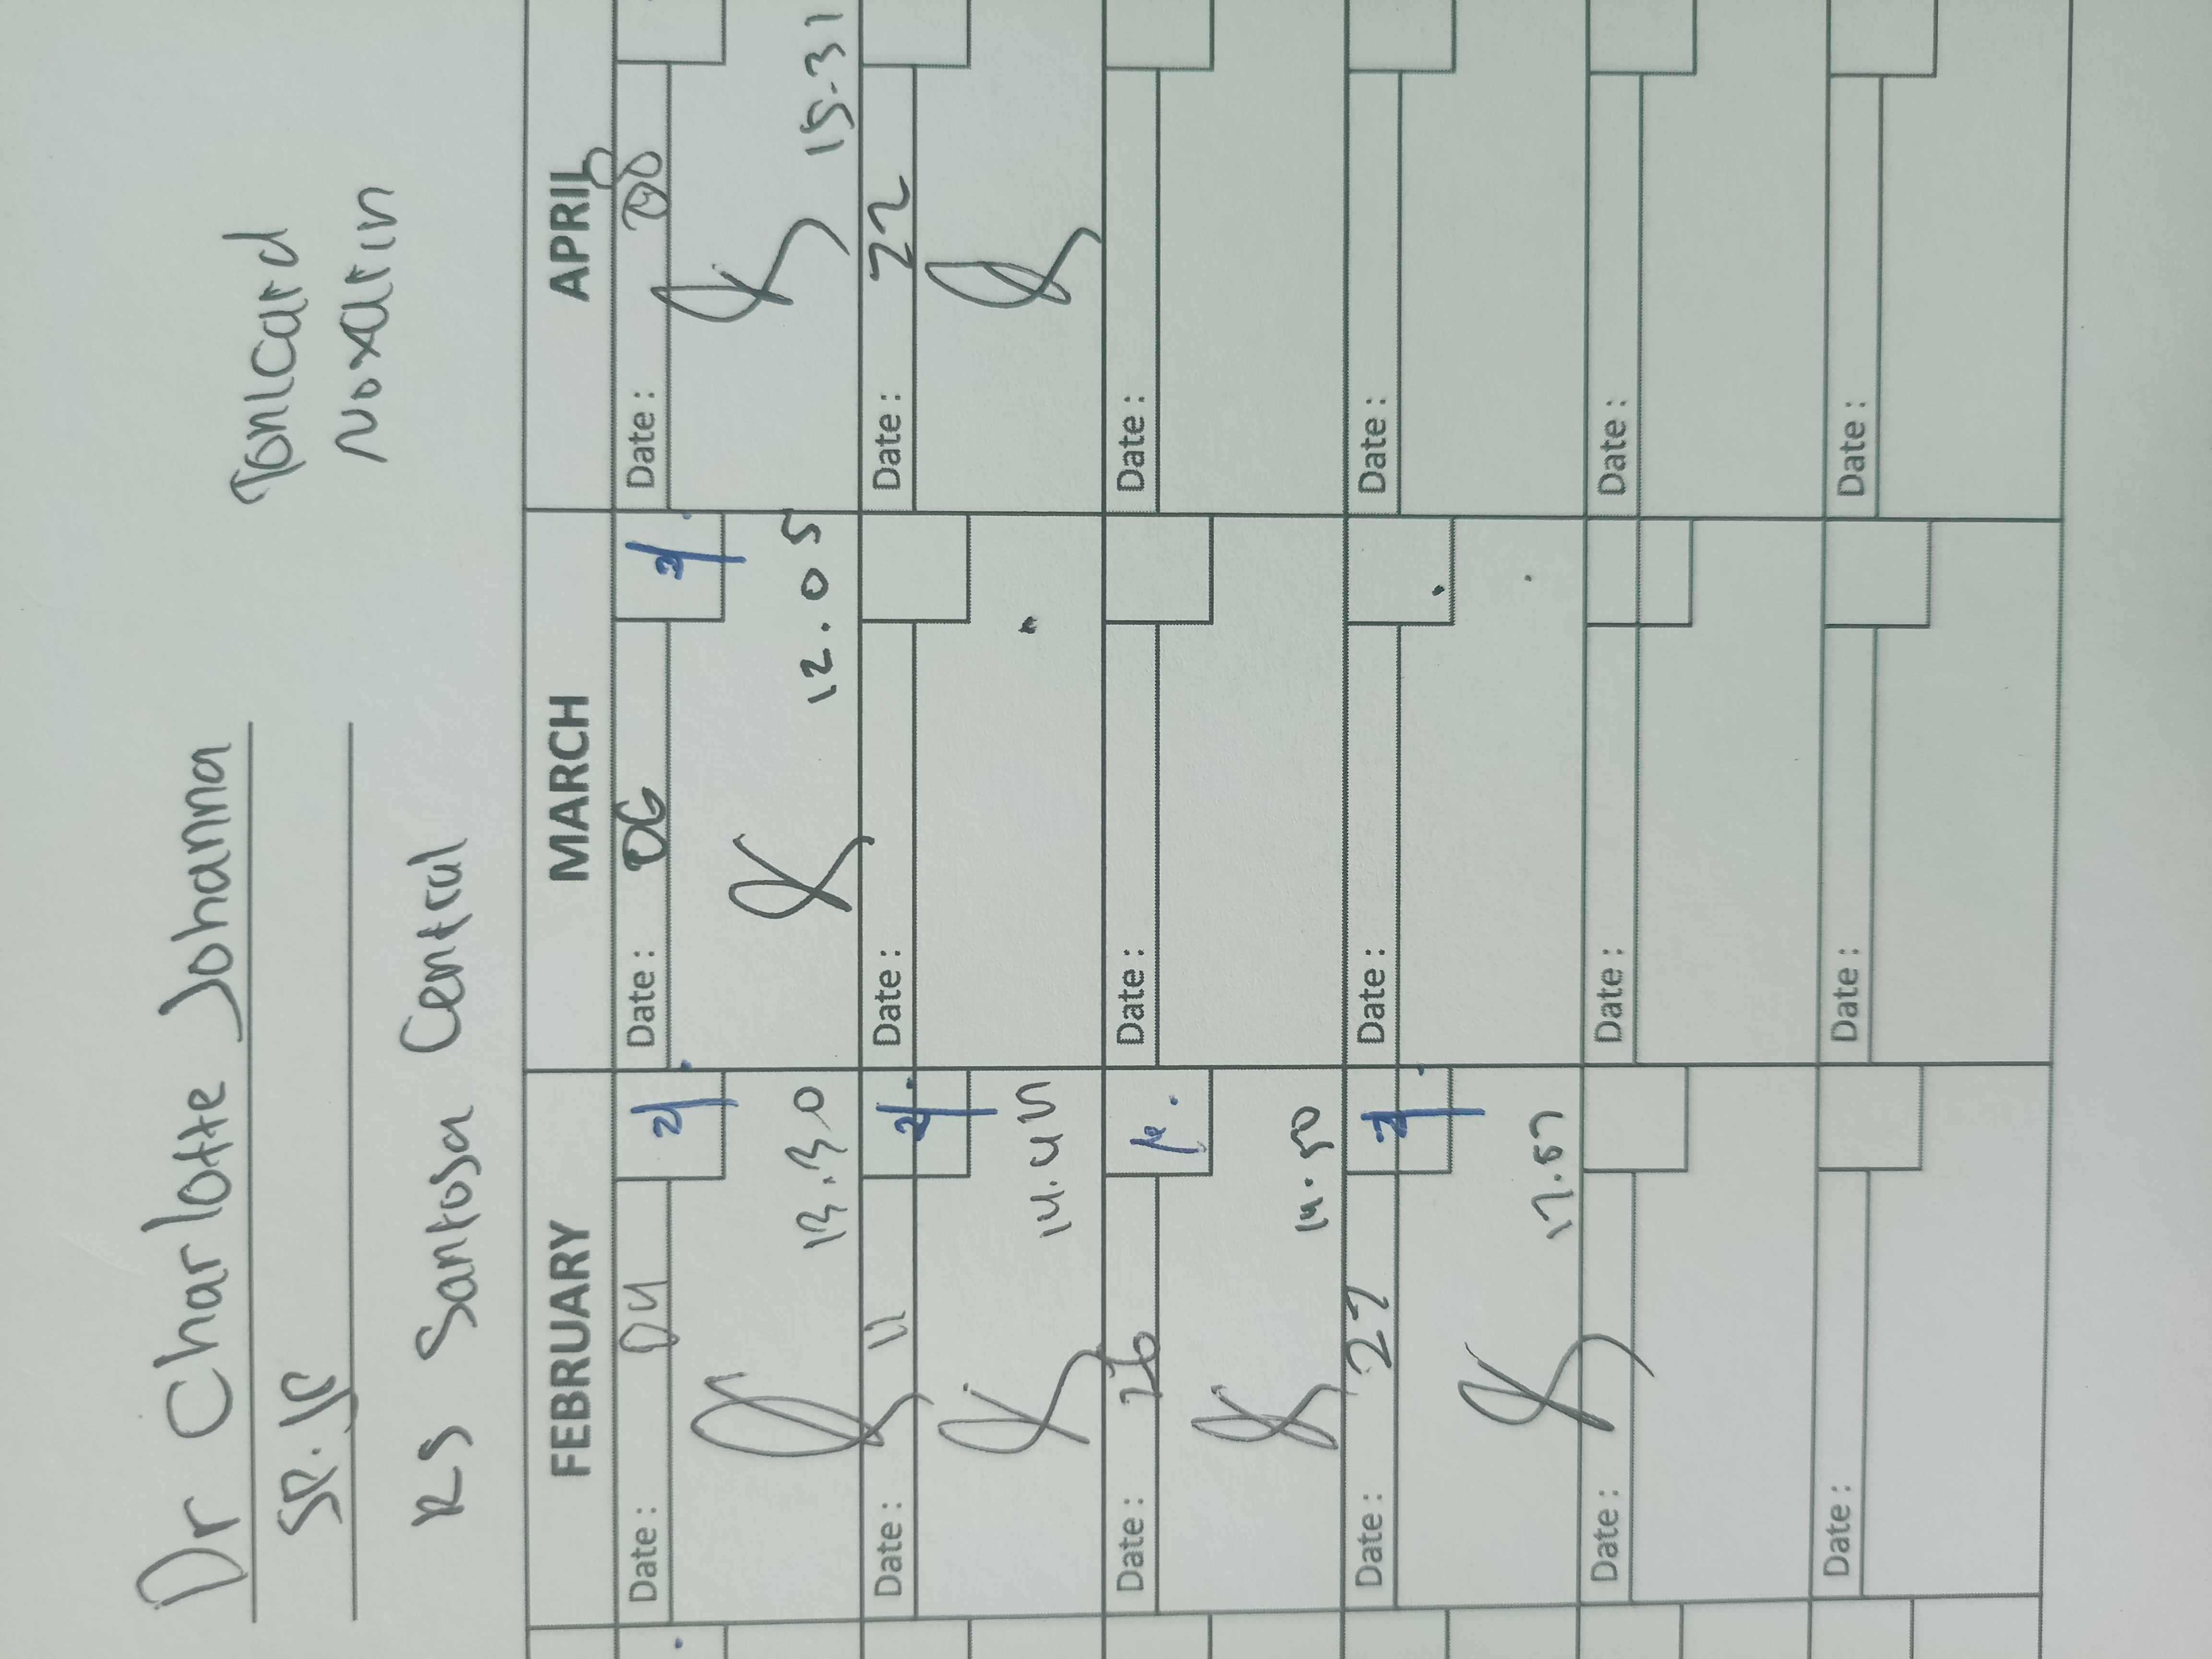 Dr Charlotte Johanna
SP.JP
RS Santosa Central
Tonicard
Noxatin
FEBRUARY MARCH APRIL
Date : 04 Date : 06 Date : 08
13.30 12.05 15.31
Date : 11 Date : Date : 22
14.45
Date : 26 Date : Date :
14.50
Date : 27 Date : Date :
17.57
Date : Date : Date :
Date : Date : Date :